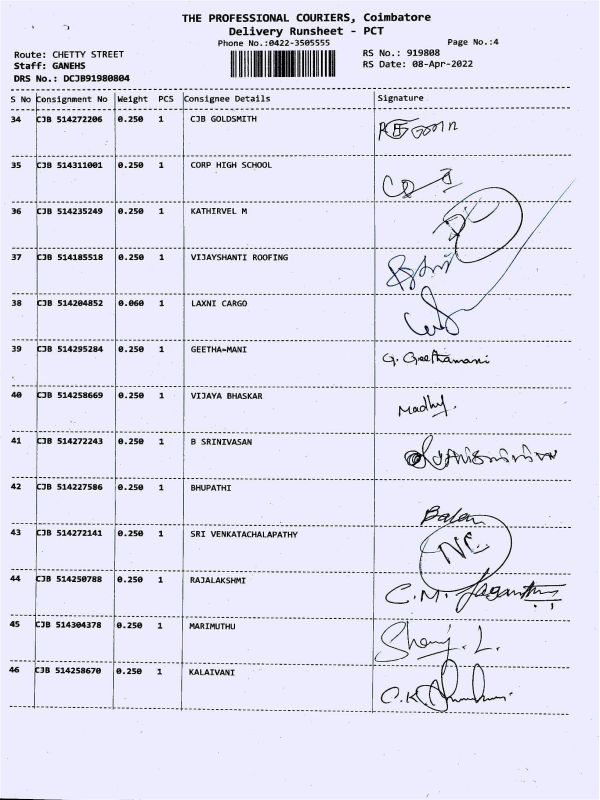 THE PROFESSIONAL COURIERS, Coimbatore
Delivery Runsheet - PCT
Phone No.:0422-3505555
Page No.:4
Route: CHETTY STREET
RS No.: 919808
Staff: GANEHS
RS Date: 08-Apr-2022
DRS No.: DCJB91980804
S No Consignment No Weight PCS Consignee Details Signature
34 CJB 514272206 0.250 1 CJB GOLDSMITH
35 CJB 514311001 0.250 1 CORP HIGH SCHOOL
36 CJB 514235249 0.250 1 KATHIRVEL M
37 CJB 514185518 0.250 1 VIJAYSHANTI ROOFING
38 CJB 514204852 0.060 1 LAXNI CARGO
39 CJB 514295284 0.250 1 GEETHA-MANI
G. Geethamani
40 CJB 514258669 0.250 1 VIJAYA BHASKAR
Madhy.
41 CJB 514272243 0.250 1 B SRINIVASAN
42 CJB 514227586 0.250 1 BHUPATHI
Balan
43 CJB 514272141 0.250 1 SRI VENKATACHALAPATHY
NC
44 CJB 514250788 0.250 1 RAJALAKSHMI
C.M.
45 CJB 514304378 0.250 1 MARIMUTHU
46 CJB 514258670 0.250 1 KALAIVANI
C.K